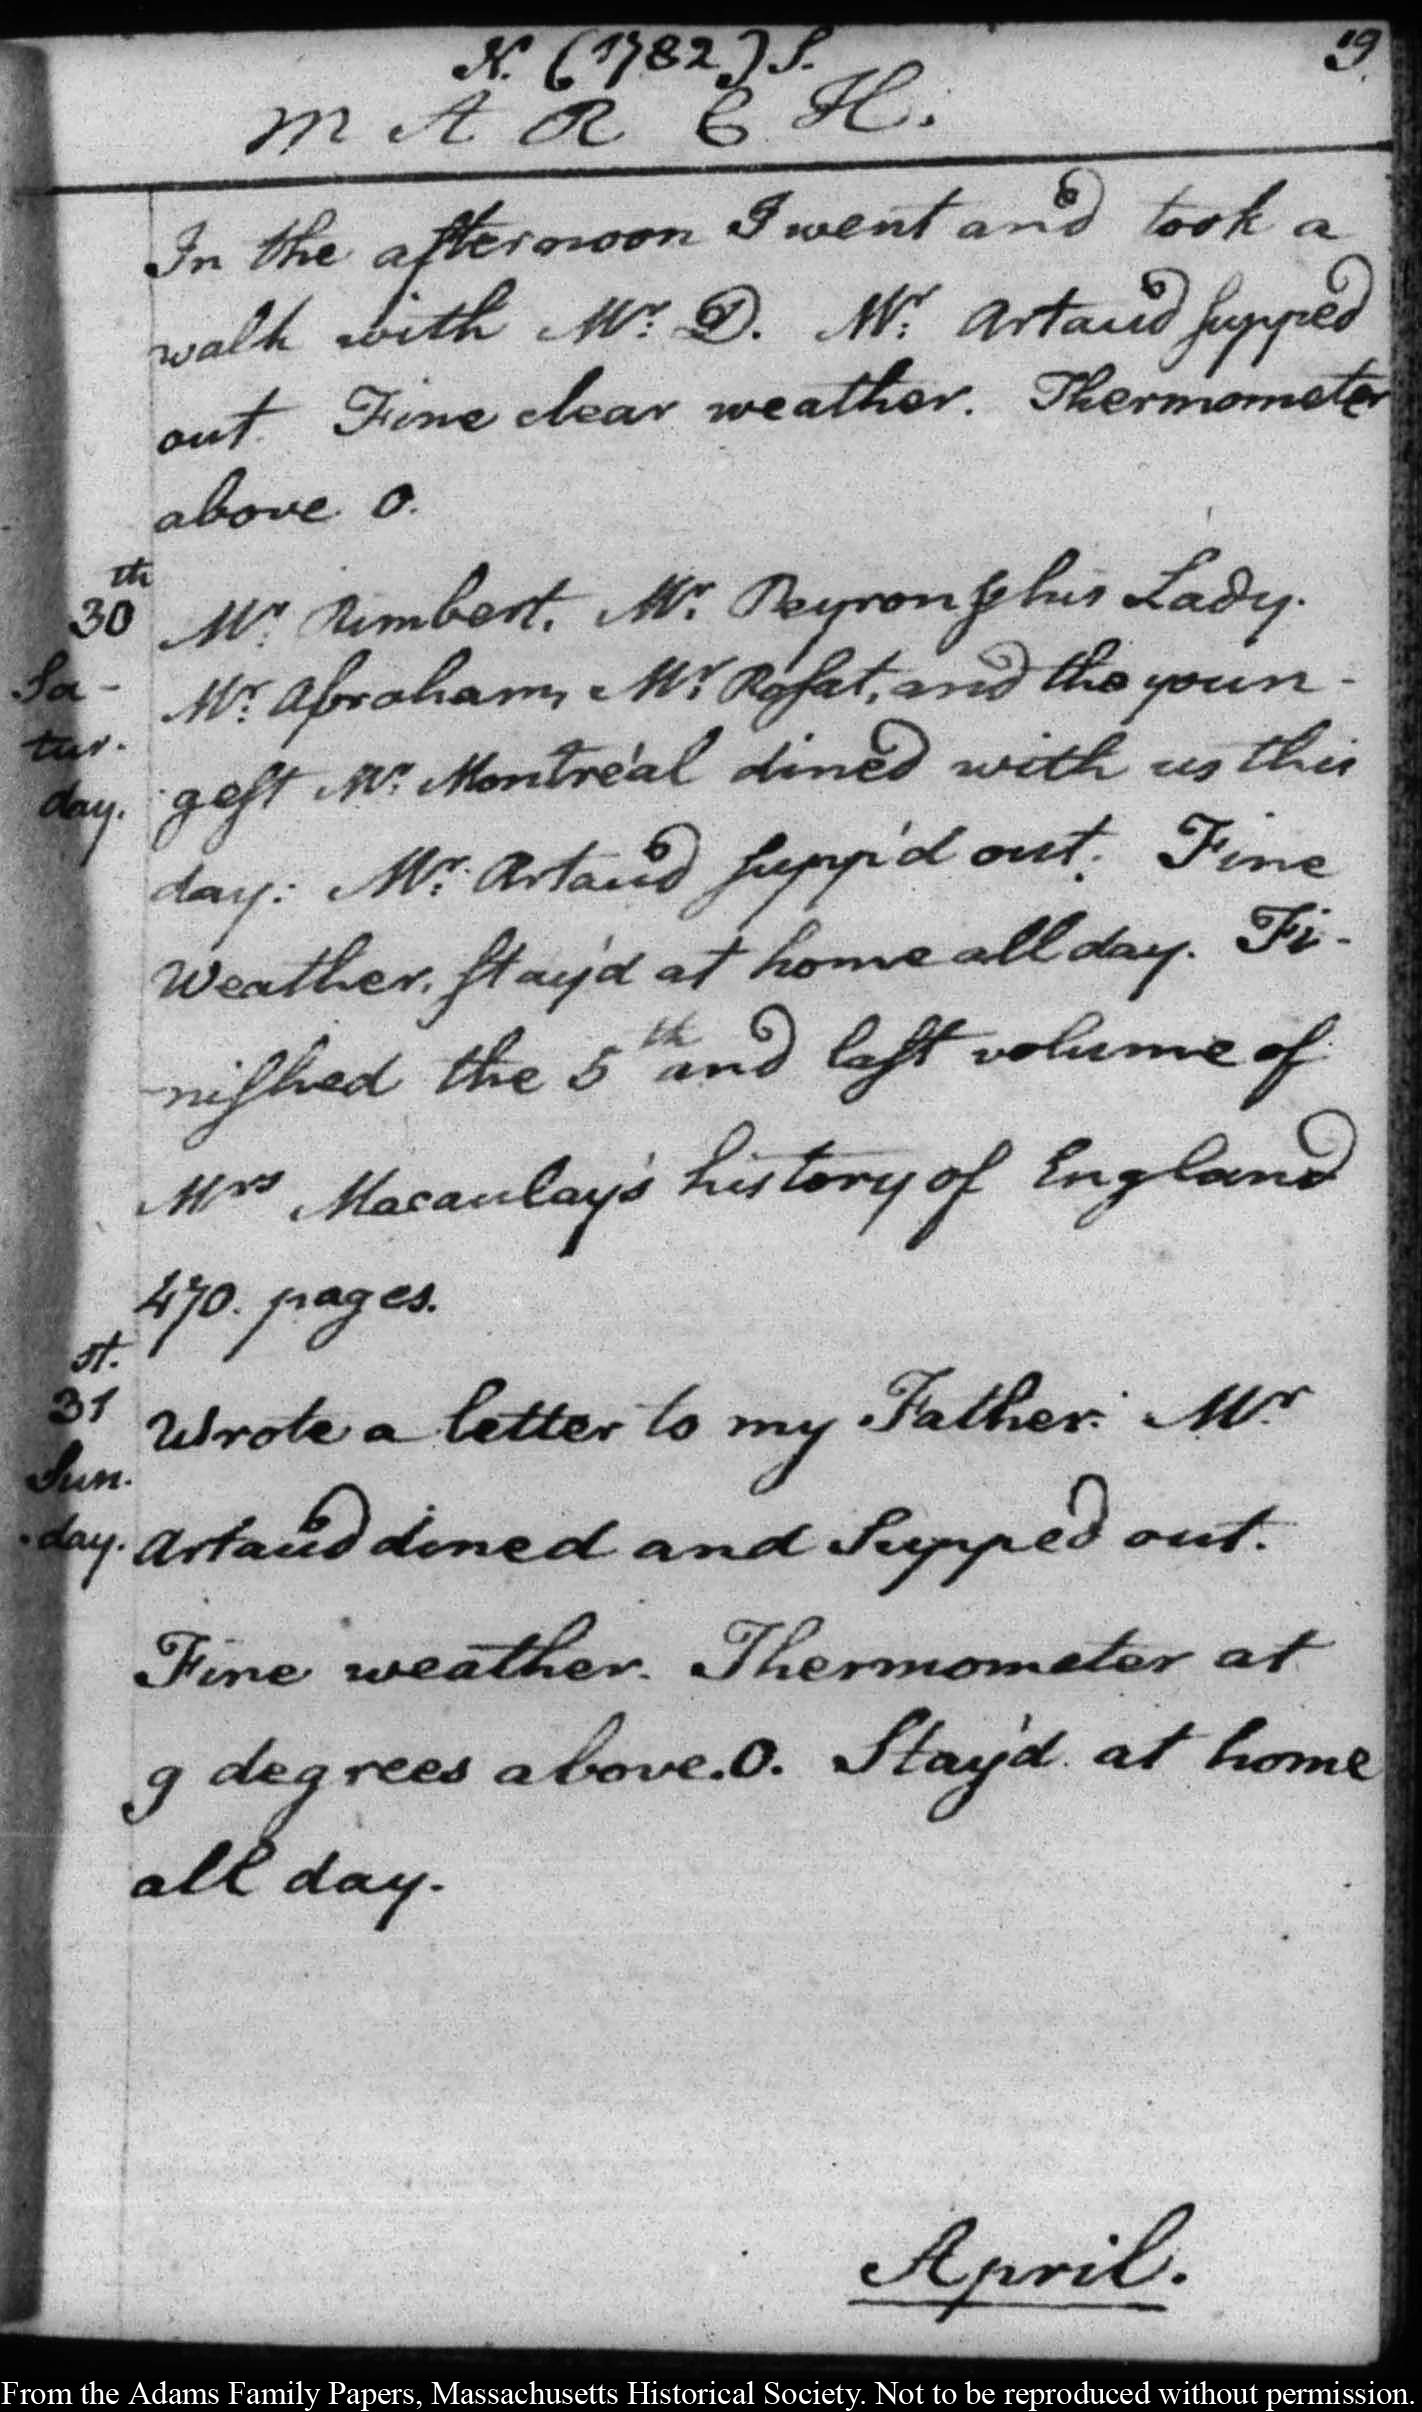 N. (1782) S.
19.
MARCH.
In the afternoon I went and took a
walk with Mr. D. Mr. Artaud supped
out. Fine clear weather. Thermometer
above 0.
30th
Sa-
tur-
day.
Mr. Rimbert. Mr. Peyron & his Lady.
Mr. Abraham, Mr. Rosat, and the youn-
gest Mr. Montréal dined with us this
day: Mr. Artaud supp'd out. Fine
Weather. stay'd at home all day. Fi-
nished the 5th and last volume of
Mrs Macaulay's history of England
470. pages.
31st.
Sun.
day.
Wrote a letter to my Father. Mr.
Artaud dined and Supped out.
Fine weather. Thermometer at
9 degrees above.0. Stay'd at home
all day.
April.
From the Adams Family Papers, Massachusetts Historical Society. Not to be reproduced without permission.